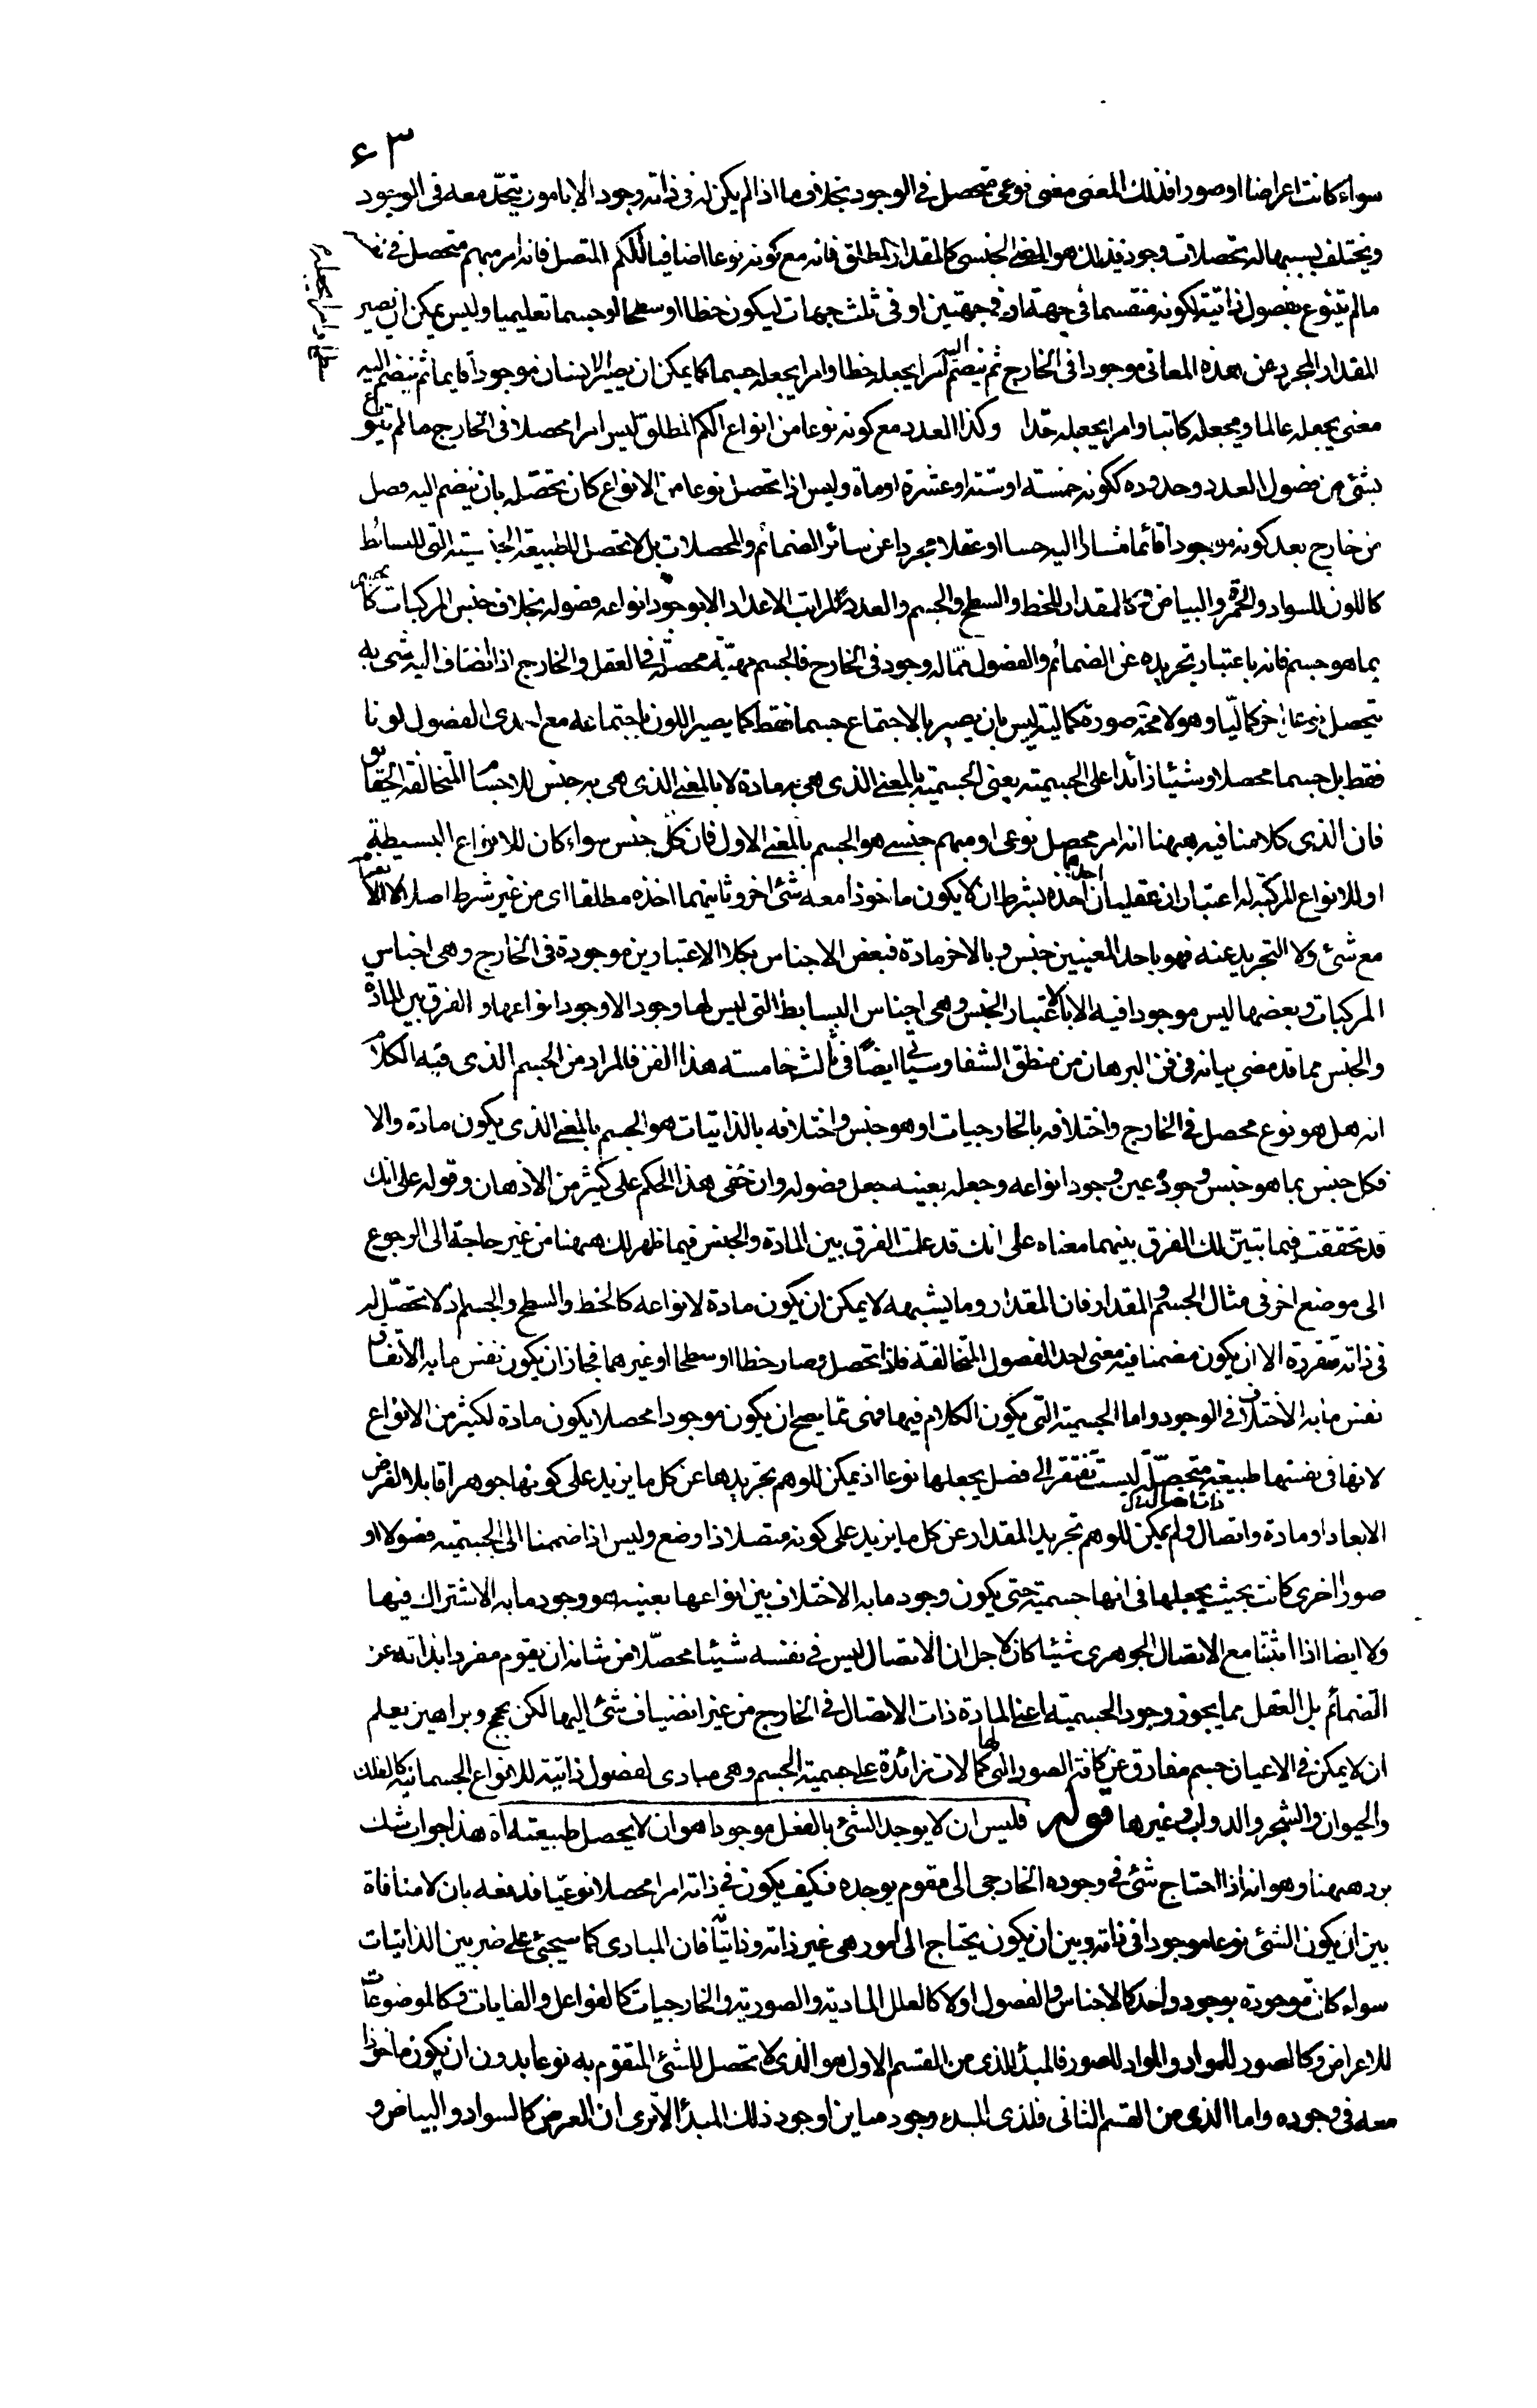 ٤٣
سواء كانت اعراضا او صورا فذلك المعنى معنى نوعى متحصل فى الوجود بخلاف ما اذا لم يكن له فى ذاته وجود الا بامور يتحد معه فى الوجود
ويختلف بسببها له تحصلات وجود فذلك هو المعنى الجنسى كالمقدار المطلق فانه مع كونه نوعا اضافيا للكم المتصل فانه امر مبهم متحصل فى نفسه
ما لم يتنوع بفصول ذاتية ككونه منقسما فى جهة او فى جهتين او فى ثلث جهات ليكون خطا او سطحا او جسما تعليميا وليس يمكن ان يصير
سطحا وامر يجعله
المقدار المجرد من هذه المعانى موجودا فى الخارج ثم ينضم اليه امر يجعله خطا وامر يجعله جسما كما يمكن ان يصير الانسان موجودا قايما ثم ينضم اليه
معنى يجعله عالما ويجعله كاتبا وامر يجعله حدا وكذا العدد مع كونه نوعا من انواع الكم المطلق ليس امرا محصلا فى الخارج ما لم يتنوع
بشئ من فصول العدد وحدوده ككونه خمسته او ستته او عشرة او ماة وليس اذا تحصل نوعا من الانواع كان تحصله بان ينضم اليه فصل
من خارج بعد كونه موجودا قائما مشارا اليه حسا او عقلا مجردا عن سائر الضمائم والمحصلات بل لا تحصل للطبيعة الجنسية التى للبسائط
كاللون للسواد والحمرة والبياض وكالمقدار للخط والسطح والجسم والعدد لمراتب الاعداد الا بوجود انواعه وفصوله بخلاف جنس المركبات كالجسم
بما هو جسم فانه باعتبار تجريده عن الضمائم والفصول مما له وجود فى الخارج فالجسم مهية محصلة فى العقل والخارج اذا انضاف اليه شئ به
يتحصل نوعا اخر كماليا وهو لا محة صورة كمالية ليس بان يصير بالاجتماع جسما فقط كما يصير اللون باجتماعه مع احدى الفصول لونا
فقط بل جسما محصلا وشيئا زائدا على الجسمية يعنى الجسمية بالمعنى الذى هى به مادة لا بالمعنى الذى هى به جنس للاجسام المتخالفة الحقايق
فان الذى كلامنا فيه ههنا انه امر محصل نوعى او مبهم جنسى هو الجسم بالمعنى الاول فان كل جنس سواء كان للانواع البسيطة
او للانواع المركبة له اعتباران عقليان احدهما اخذه بشرط ان لا يكون ماخوذا معه شئ اخر وثانيهما اخذه مطلقا اى من غير شرط اصلا لا الانضمام
مع شئ ولا التجريد عنه فهو باحد المعنيين جنس وبالاخر مادة فبعض الاجناس بكلا الاعتبارين موجودة فى الخارج وهى اجناس
المركبات وبعضها ليس موجودا فيه الا بالاعتبار الجنس وهى اجناس البسايط التى ليس لها وجود الا وجود انواعها والفرق بين المادة
والجنس مما قد مضى بيانه فى فن البرهان من منطق الشفا وسيأتى ايضا فى ثالث خامسته هذا الفن فالمراد من الجسم الذى فيه الكلام
انه هل هو نوع محصل فى الخارج واختلافه بالخارجيات او هو جنس واختلافه بالذاتيات هو الجسم بالمعنى الذى يكون مادة والا
فكل جنس بما هو جنس وجوده عين وجود انواعه وجعله بعينه جعل فصوله وان خفى هذا الحكم على كثير من الاذهان وقوله على انك
قد تحققت فيما تبين لك الفرق بينهما معناه على انك قد علمت الفرق بين المادة والجنس فيما ظهر لك ههنا من غير حاجة الى الرجوع
الى موضع اخر فى مثال الجسم والمقدار فان المقدار وما يشبهه لا يمكن ان يكون مادة لانواعه كالخط والسطح والجسم اذ لا تحصل له
فى ذاته متقررة الا ان يكون مضمنا فيه معنى احد الفصول المتخالفة فاذا تحصل وصار خطا او سطحا او غيرهما فجاز ان يكون نفس ما به الاتفاق
نفس ما به الاختلاف فى الوجود واما الجسمية التى يكون الكلام فيها فهى مما يصح ان يكون موجودا محصلا يكون مادة لكثير من الانواع
لانها فى نفسها طبيعة متحصلة ليست تفتقر الى فصل يجعلها نوعا اذ يمكن للوهم تجريدها عن كل ما يزيد على كونها جوهرا قابلا لفرض
الابعاد او مادة واتصال ولم يمكن للوهم تجريد المقدار عن كل ما يزيد على كونه متصلا ذا وضع وليس اذا ضممنا الى الجسمية فصولا او
صورا اخرى كانت بحيث يجعلها فى انها جسمية حتى يكون وجود ما به الاختلاف بين انواعها بعينه هو وجود ما به الاشتراك فيها
ولا ايضا اذا اثبتنا مع الاتصال الجوهرى شيئا كان لاجل ان الاتصال ليس فى نفسه شيئا محصلا من شانه ان يقوم مفردا بذاته عن
الضمائم بل العقل مما يجوز وجود الجسمية اعنى المادة ذات الاتصال فى الخارج من غير انضياف شئ اليها لكن بحجج وبراهين يعلم
ان لا يمكن فى الاعيان جسم مفارق عن كافة الصور التى لها كمالات زائدة على جسمية الجسم وهى مبادى لفصول ذاتية للانواع الجسمانية كالفلك
والحيوان والشجر والدواب وغيرها قوله فليس ان لا يوجد الشئ بالفعل موجودا هو ان لا يحصل طبيعته اه هذا جواب شك
يرد ههنا وهو انه اذا احتاج شئ فى وجوده الخارجى الى مقوم يوجده فكيف يكون فى ذاته امرا محصلا نوعيا فدفعه بان لا منافاة
بين ان يكون الشئ نوعا موجودا فى ذاته وبين ان يكون يحتاج الى امور هى غير ذاته وذاتياته فان المبادى كما سيجئ على ضربين الذاتيات
سواء كانت موجودة بوجود واحد كالاجناس والفصول او لا كالعلل المادية والصورية والخارجيات كالفواعل والغايات وكالموضوعات
للاعراض وكالصور للمواد والمواد للصور فالمبدأ الذى من القسم الاول هو الذى لا تحصل للشئ المتقوم به نوعا بدون ان يكون ماخوذا
معه فى وجوده واما الذى من القسم الثانى فلذى المبدء وجود مباين لوجود ذلك المبدأ الا ترى ان العرض كالسواد والبياض و